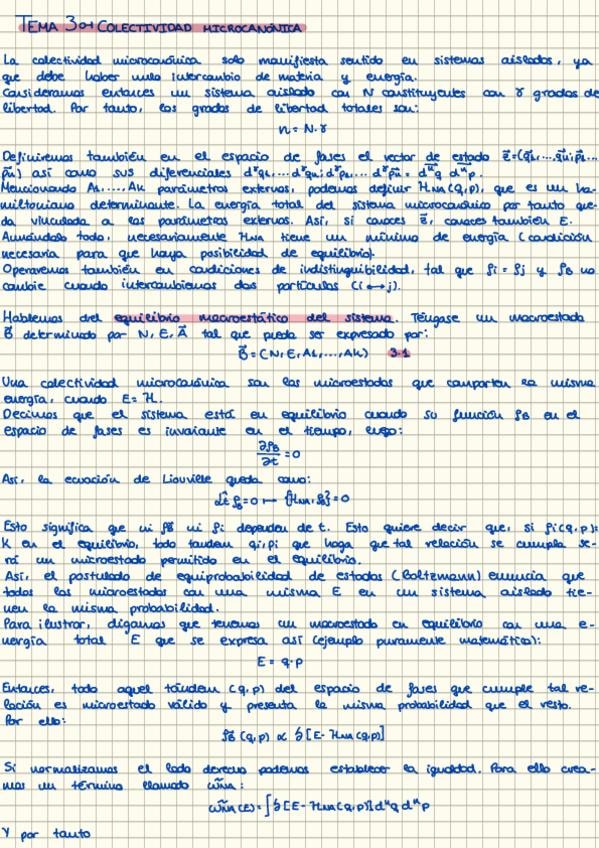 TEMA 3.- COLECTIVIDAD MICROCANÓNICA
La colectividad microcanónica solo manifiesta sentido en sistemas aislados, ya
que debe haber nulo intercambio de materia y energía.
Consideramos entonces un sistema aislado con N constituyentes con γ grados de
libertad. Por tanto, los grados de libertad totales son:
n = N·γ
Definiremos también en el espacio de fases el vector de estado e⃗=(q⃗1,...q⃗n;p⃗1...
p⃗n) así como sus diferenciales dʳq1,...dʳqn;dʳp1...dʳpn = dⁿq dⁿp.
Mencionando A1,...,Ak parámetros externos, podemos definir HNA(q,p), que es un ha-
miltoniano determinante. La energía total del sistema microcanónico por tanto que-
da vinculada a los parámetros externos. Así, si conoces e⃗, conoces también E.
Aunándolo todo, necesariamente HNA tiene un mínimo de energía (condición
necesaria para que haya posibilidad de equilibrio).
Operaremos también en condiciones de indistinguibilidad, tal que ρi = ρj y ρB no
cambie cuando intercambiemos dos partículas (i↔j).
Hablemos del equilibrio macroestático del sistema. Téngase un macroestado
B⃗ determinado por N, E, A⃗ tal que pueda ser expresado por:
B⃗ = (N, E, A1,...,Ak) 3.1
Una colectividad microcanónica son los microestados que comparten la misma
energía, cuando E = H.
Decimos que el sistema está en equilibrio cuando su función ρB en el
espacio de fases es invariante en el tiempo, luego:
∂ρB/∂t = 0
Así, la ecuación de Liouville queda como:
ρB = 0 {HNA, ρB} = 0
Esto significa que ni ρB ni ρi dependen de t. Esto quiere decir que, si ρi(q,p)=
K en el equilibrio, todo tandem qi,pi que haga que tal relación se cumpla se-
rá un microestado permitido en el equilibrio.
Así, el postulado de equiprobabilidad de estados (Boltzmann) enuncia que
todos los microestados con una misma E en un sistema aislado tie-
nen la misma probabilidad.
Para ilustrar, digamos que tenemos un macroestado en equilibrio con una e-
nergía total E que se expresa así (ejemplo puramente matemático):
E = q·p
Entonces, todo aquel tándem (q,p) del espacio de fases que cumple tal re-
lación es microestado válido y presenta la misma probabilidad que el resto.
Por ello:
ρB(q,p) ∝ δ[E-HNA(q,p)]
Si normalizamos el lado derecho podemos establecer la igualdad. Para ello crea-
mos un término llamado ω̃NA:
ω̃NA(E) = ∫δ[E-HNA(q,p)]dⁿq dⁿp
Y por tanto